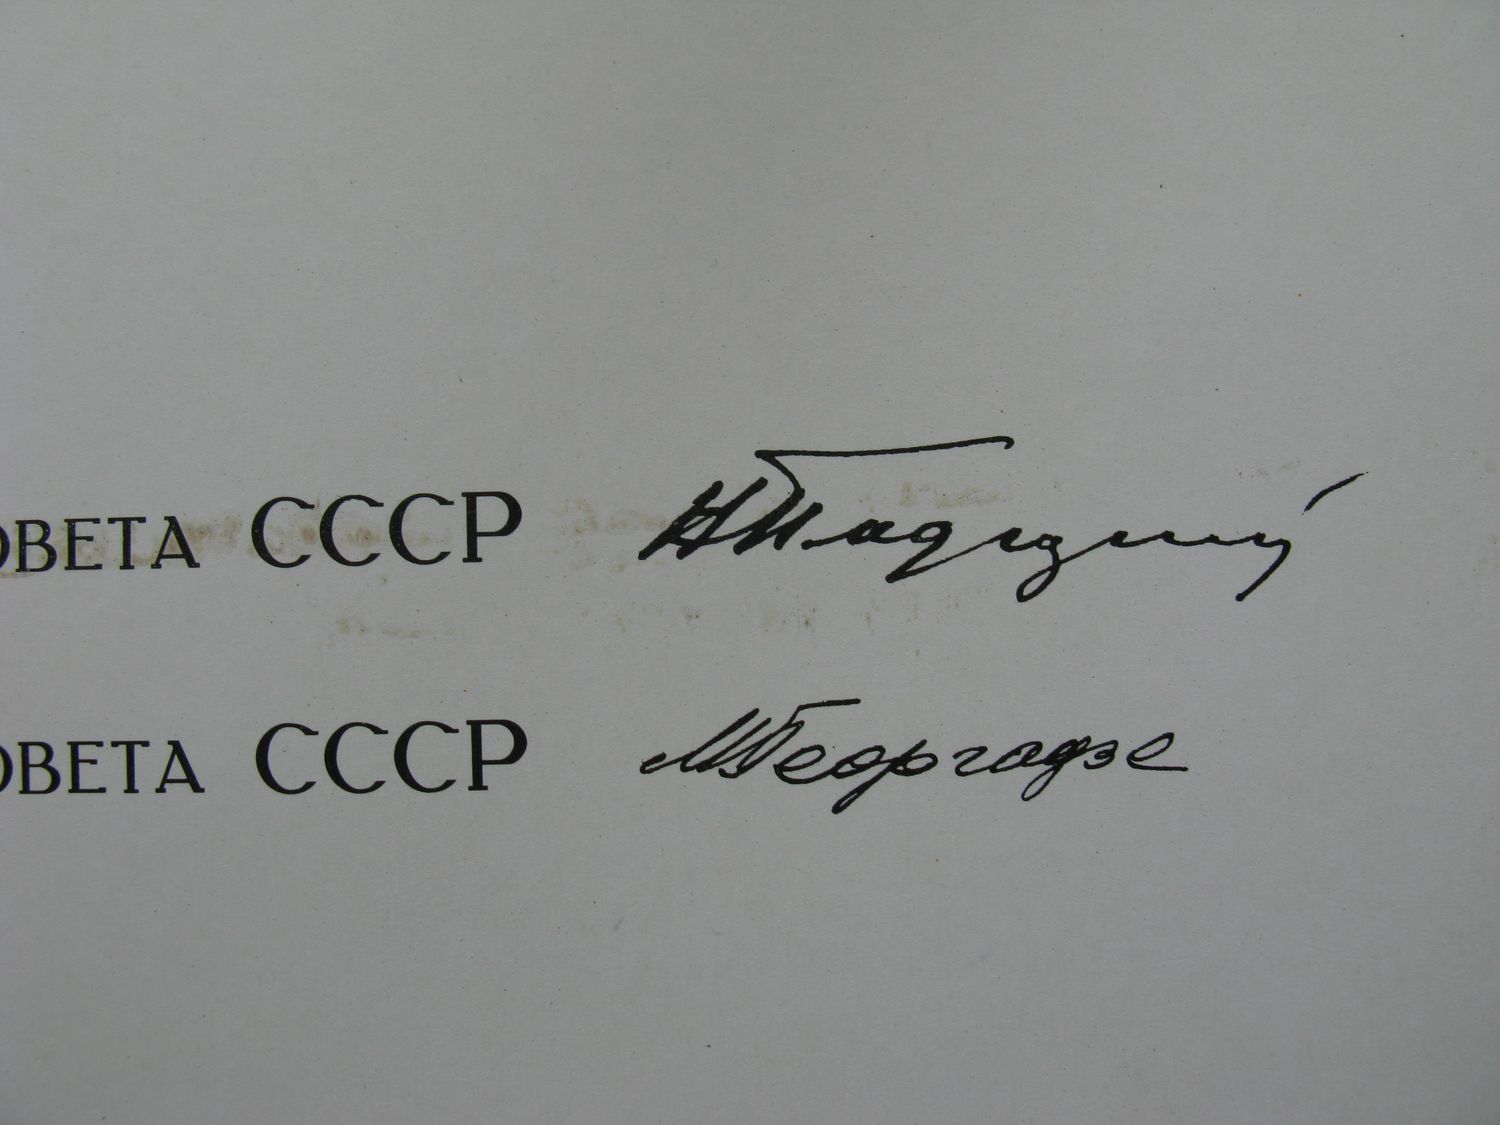 ОВЕТА СССР Н Подгорный
ОВЕТА СССР МГеоргадзе